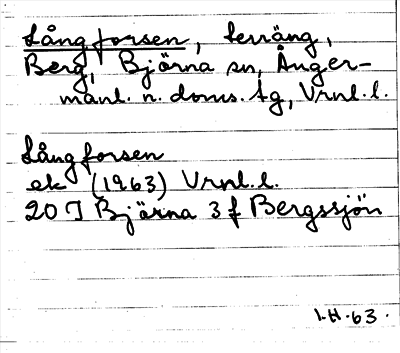 Långforsen, terräng,
Berg, Björna sn, Ånger-
manl. n. doms. tg, Vrnl. l.
Långforsen
ek (1963) Vrnl. l.
20 I Björna 3 f Bergssjön
I.H. 63.